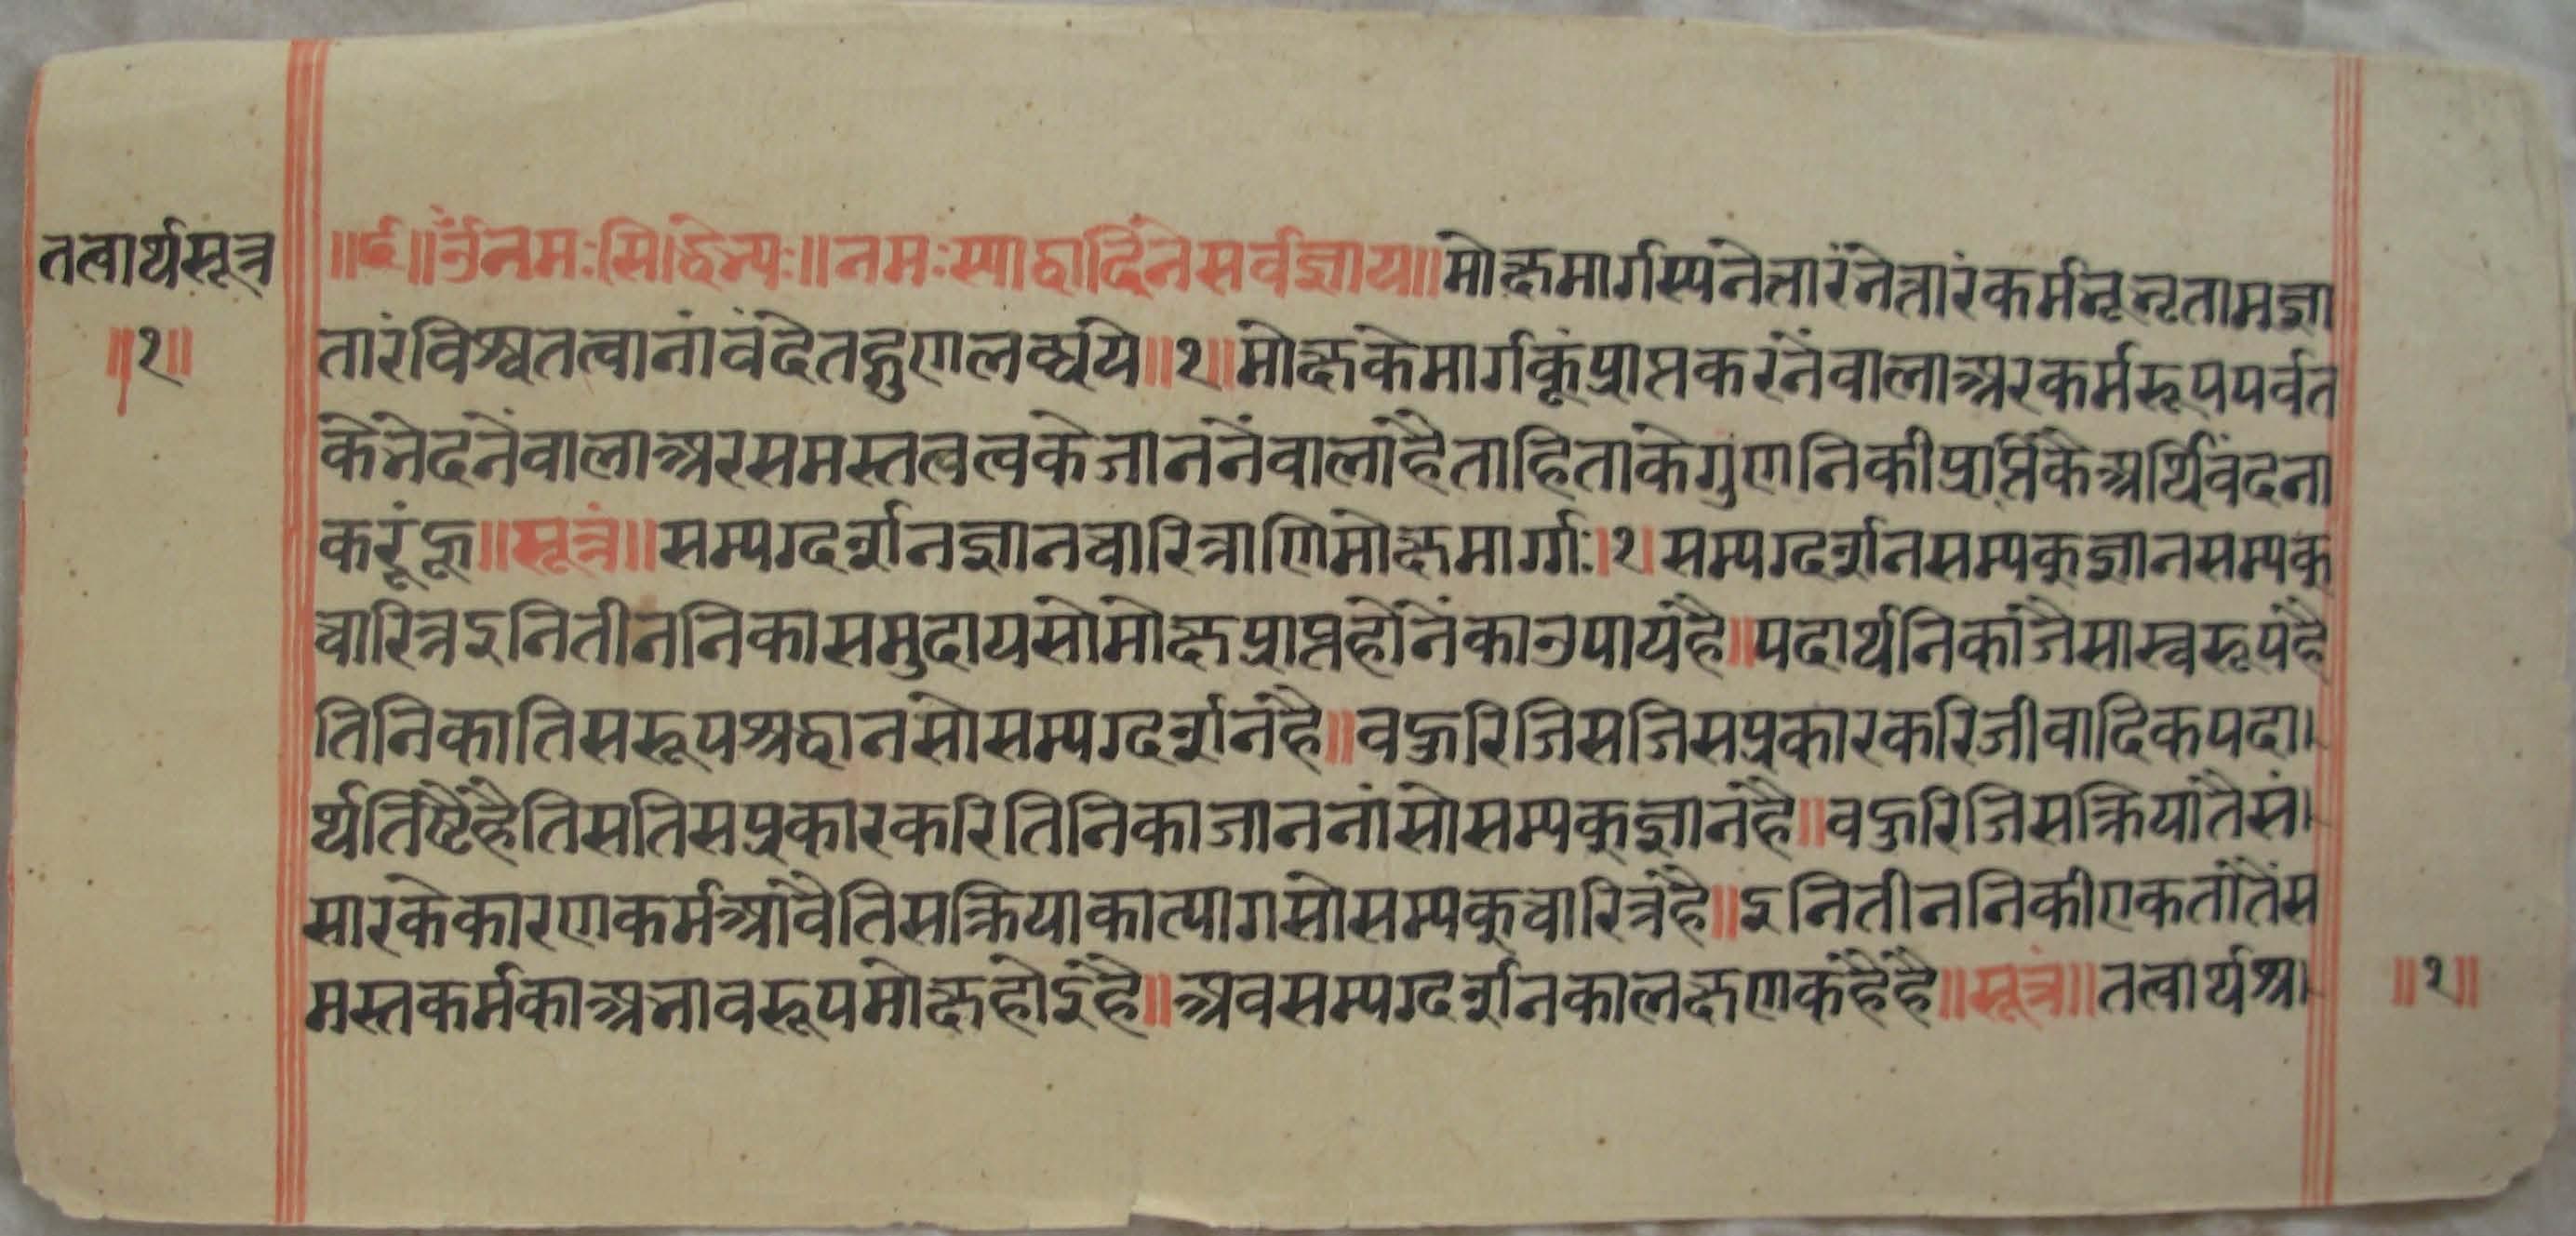 तत्वार्थसूत्र
॥१॥
॥ॐनमःसिद्धेभ्यः॥नमःस्याद्वादिनेसर्वज्ञाय॥मोक्षमार्गस्यनेत्तारंभेत्तारंकर्मभूभृतामज्ञा
तारंविश्वतत्वानांवंदेतद्गुणलब्धये॥१॥मोक्षकेमार्गकूंप्राप्तकरनेंवालाअरकर्मरूपपर्वत
केभेदनेंवालाअरसमस्ततत्वत्वकेजाननेंवालाहैताहिताकेगुणनिकीप्राप्तिकेअर्थिवंदना
करूंहूं॥सूत्रं॥सम्यग्दर्शनज्ञानचारित्राणिमोक्षमार्गः।१।सम्यग्दर्शनसम्यक्ज्ञानसम्यक्
चारित्रइनितीननिकासमुदायसोमोक्षप्राप्तहोनेंकाउपायहै॥पदार्थनिकाजैसास्वरूपहै
तिनिकातिसरूपश्रद्धानसोसम्यग्दर्शनहै॥बहुरिजिसजिसप्रकारकरिजीवादिकपदा।
र्थतिष्टैहैतिसतिसप्रकारकरितिनिकाजाननांसोसम्यक्ज्ञानहै॥बहुरिजिसक्रियातैसं।
सारकेकारणकर्मआवैतिसक्रियाकात्यागसोसम्यक्चारित्रहै॥इनितीननिकीएकतातैंस
मस्तकर्मकाअभावरूपमोक्षहोइहै॥अबसम्यग्दर्शनकालक्षणकहैहै॥सूत्रं॥तत्वार्थश्र।
॥१॥